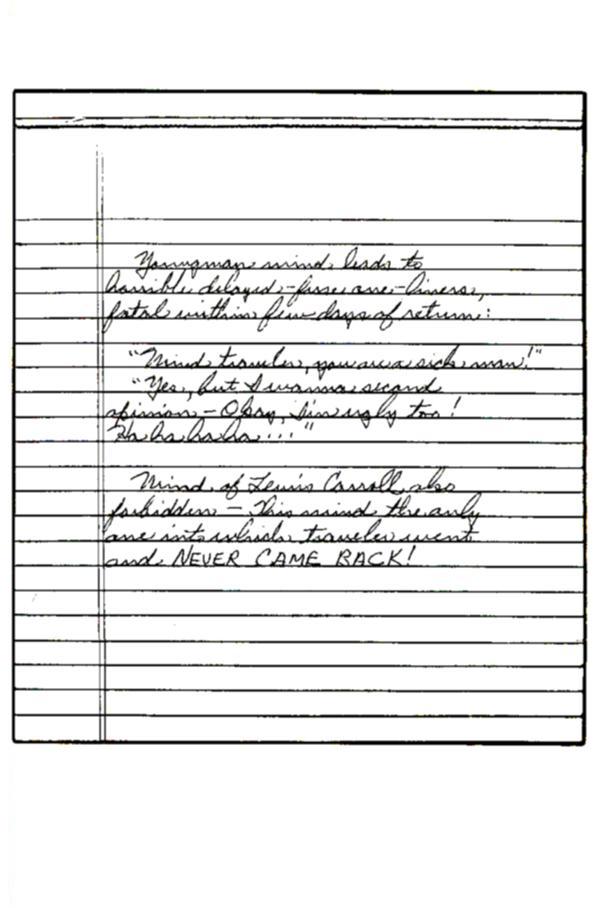 Youngman mind leads to
horrible delayed-fuse one-liners,
fatal within few days of return:
"Mind traveler, you are a sick man!"
"Yes, but I wanna second
opinion - Okay, I'm ugly too!
Ha ha ha ha..."
Mind of Lewis Carroll also
forbidden - This mind the only
one into which traveler went
and NEVER CAME BACK!